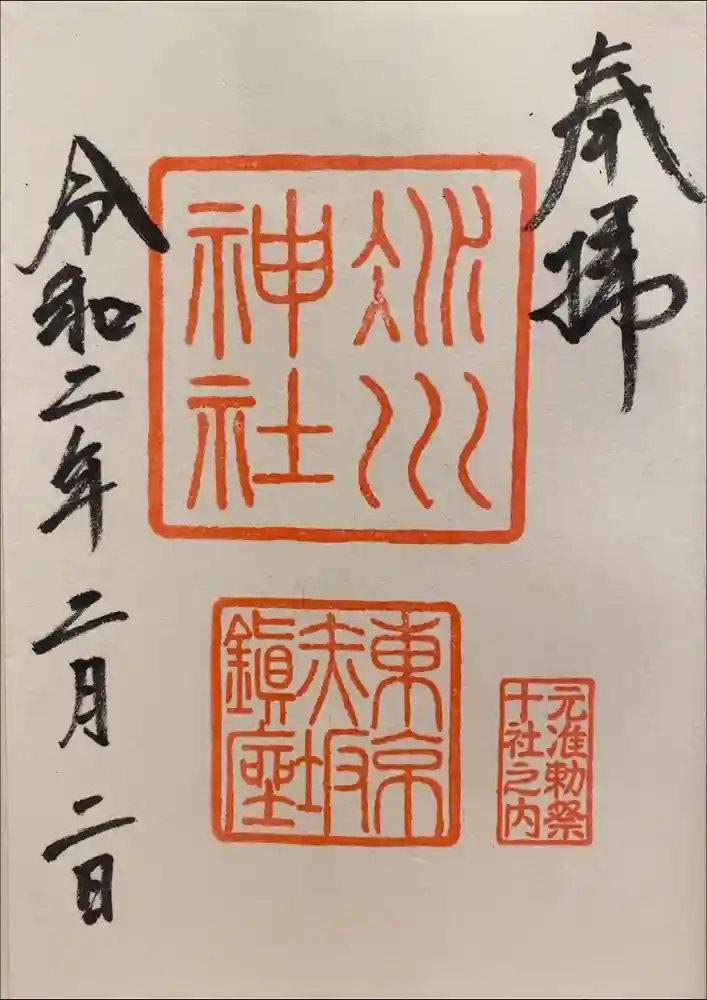 奉拝
氷川
神社
東京
赤坂
鎮座
元准勅祭
十社之内
令和二年 二月 二日